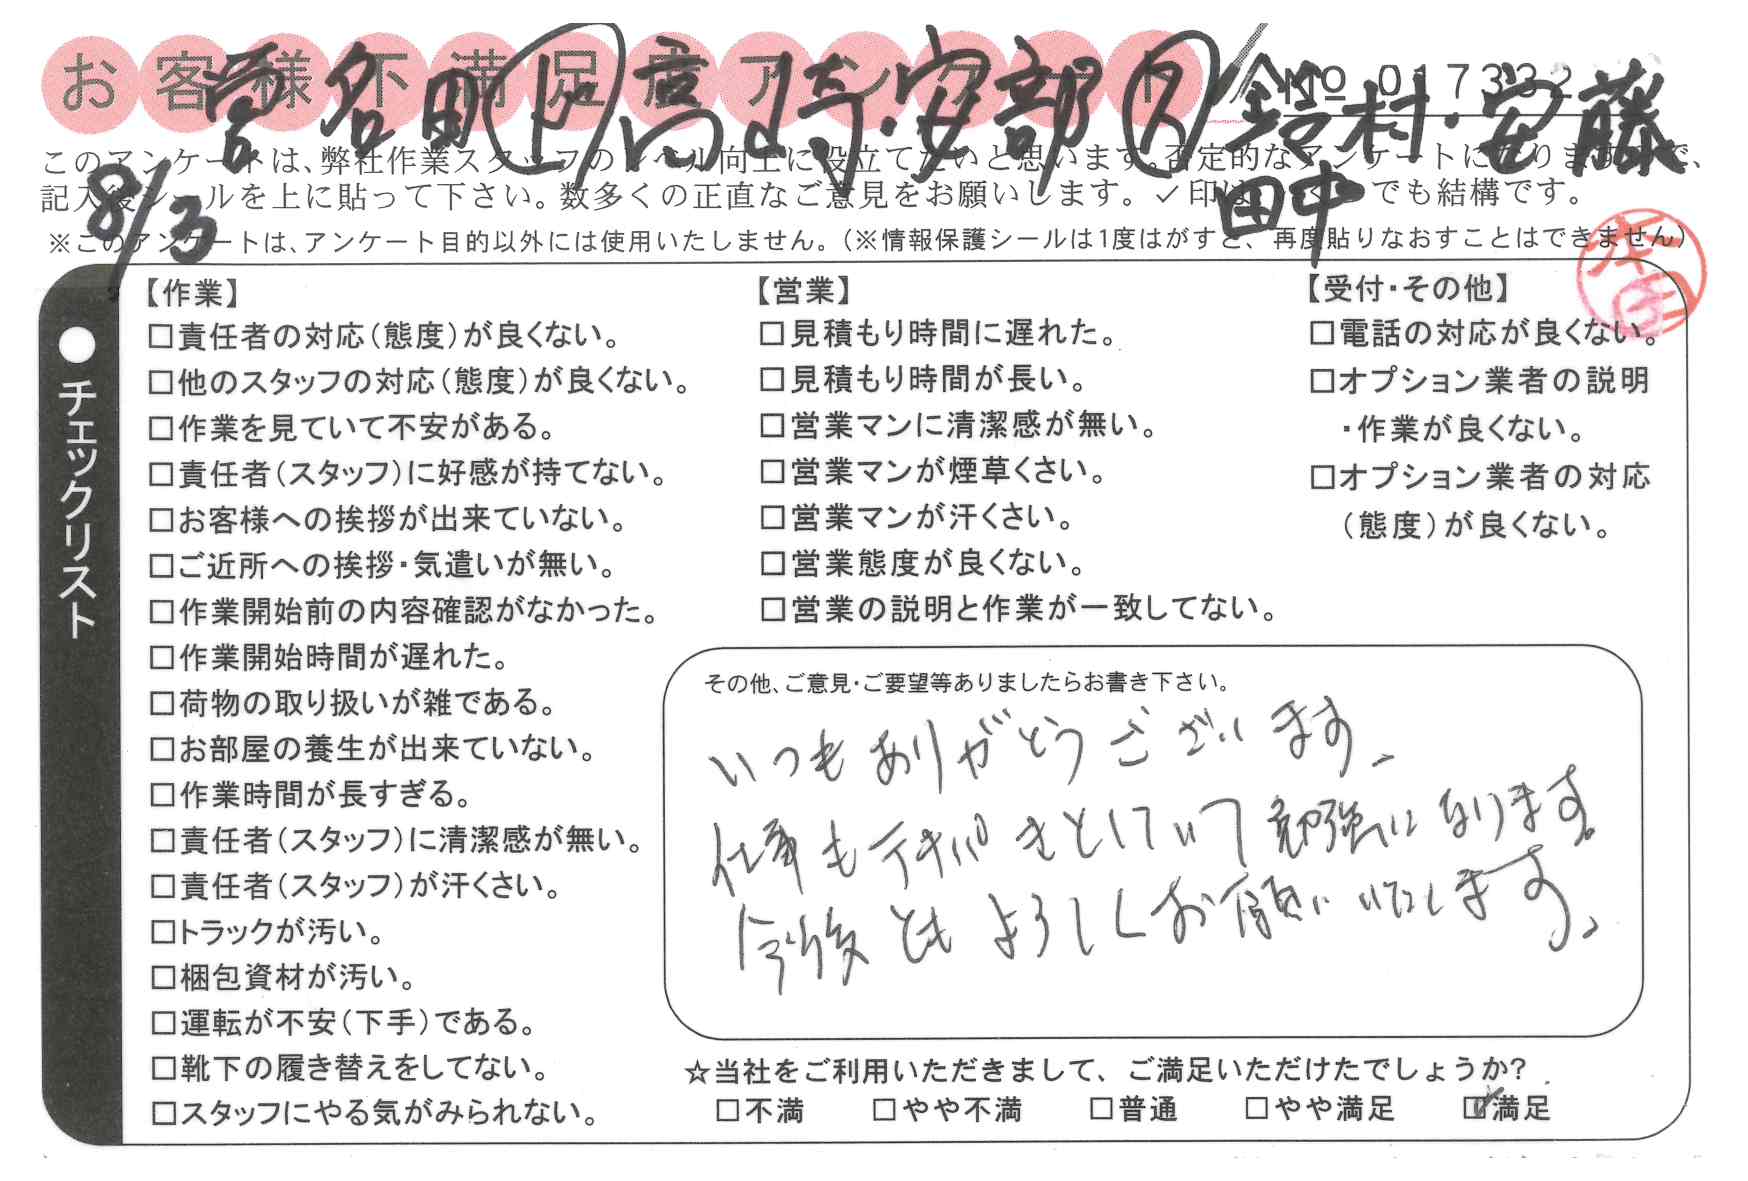 お客様不満足度アンケート
№ 017332
菅名田 上 高崎・安部 久 鈴村・安藤
田中
8/3
このアンケートは、弊社作業スタッフのレベル向上に役立てたいと思います。否定的なアンケートになりますので、
記入後シールを上に貼って下さい。数多くの正直なご意見をお願いします。✓印はいくつでも結構です。
※このアンケートは、アンケート目的以外には使用いたしません。(※情報保護シールは1度はがすと、再度貼りなおすことはできません)
●チェックリスト
【作業】
□責任者の対応(態度)が良くない。
□他のスタッフの対応(態度)が良くない。
□作業を見ていて不安がある。
□責任者(スタッフ)に好感が持てない。
□お客様への挨拶が出来ていない。
□ご近所への挨拶・気遣いが無い。
□作業開始前の内容確認がなかった。
□作業開始時間が遅れた。
□荷物の取り扱いが雑である。
□お部屋の養生が出来ていない。
□作業時間が長すぎる。
□責任者(スタッフ)に清潔感が無い。
□責任者(スタッフ)が汗くさい。
□トラックが汚い。
□梱包資材が汚い。
□運転が不安(下手)である。
□靴下の履き替えをしてない。
□スタッフにやる気がみられない。
【営業】
□見積もり時間に遅れた。
□見積もり時間が長い。
□営業マンに清潔感が無い。
□営業マンが煙草くさい。
□営業マンが汗くさい。
□営業態度が良くない。
□営業の説明と作業が一致してない。
【受付・その他】
□電話の対応が良くない。
□オプション業者の説明
・作業が良くない。
□オプション業者の対応
(態度)が良くない。
その他、ご意見・ご要望等ありましたらお書き下さい。
いつもありがとうございます。
仕事もテキパキとしていて勉強になります。
今後ともよろしくお願いいたします。
☆当社をご利用いただきまして、ご満足いただけたでしょうか?
□不満 □やや不満 □普通 □やや満足 ☑満足